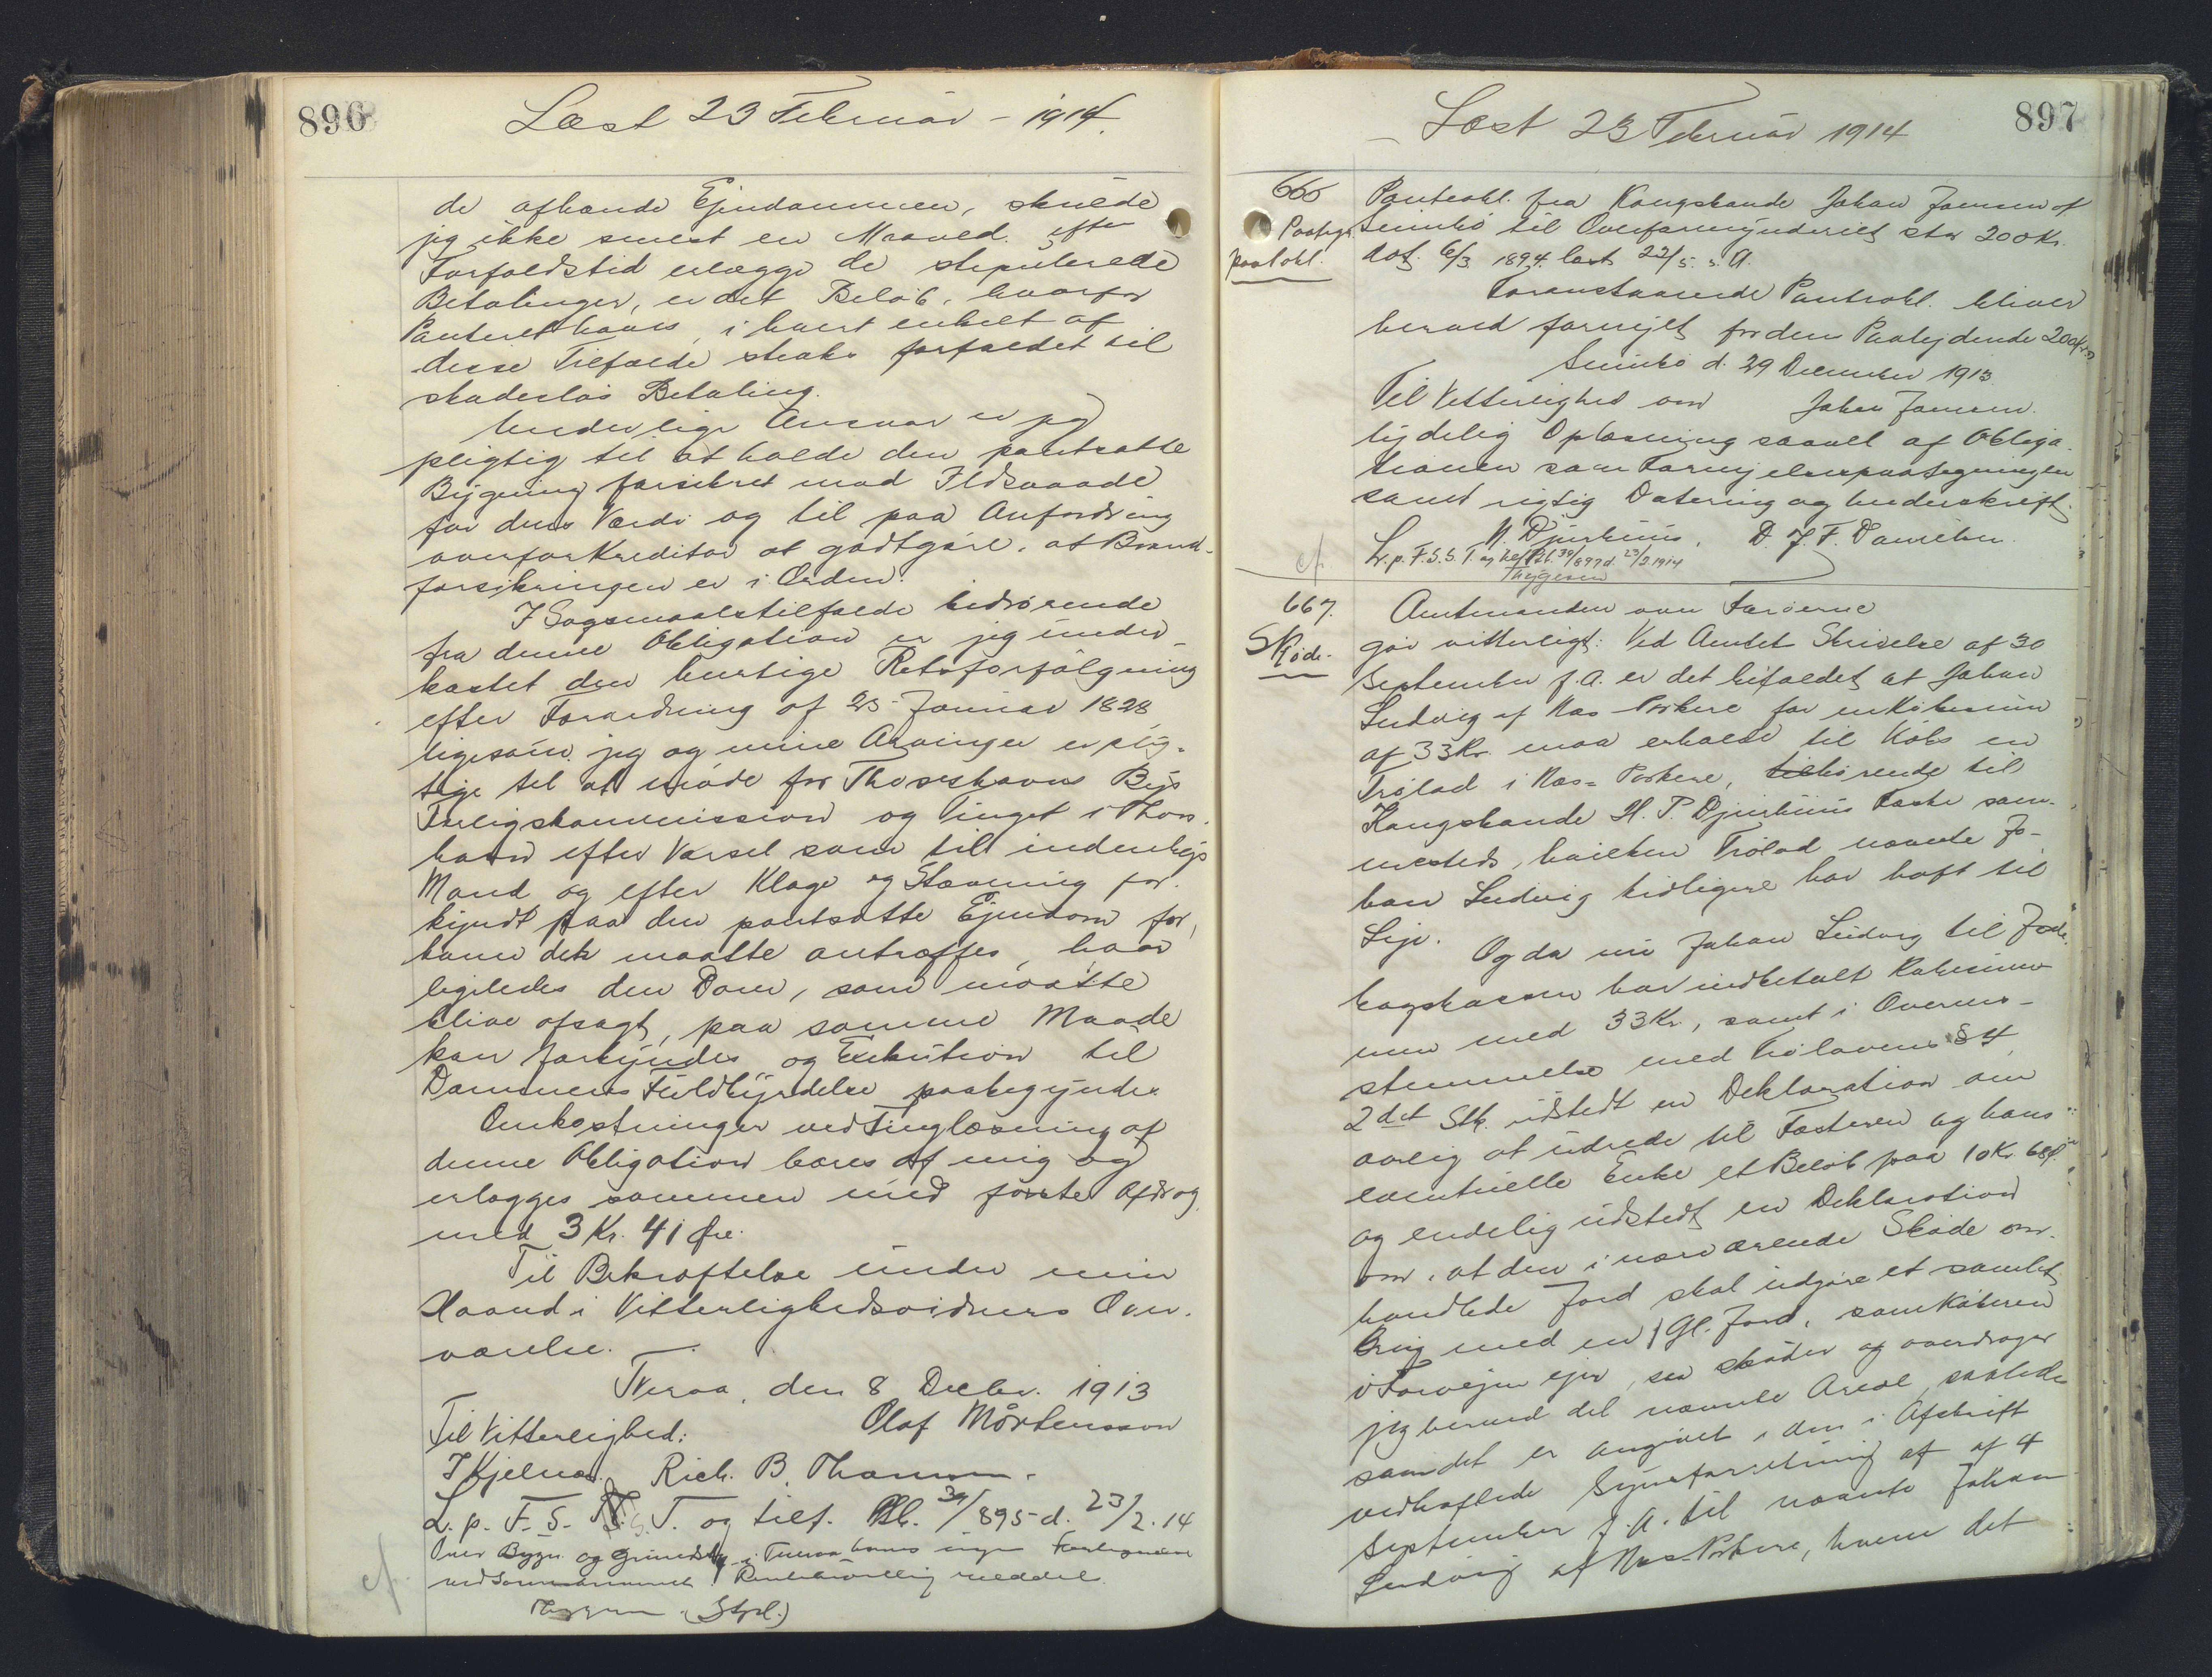 896
Læst 23 Februar - 1914.
de afhænde Ejendommen, skulde
jeg ikke senest en Maaned efter
Forfaldstid erlægge de stipulerede
Betalinger, er det Beløb, hvorfor
Panteret haves, i hvert enkelt af
disse Tilfælde straks forfaldet til
skadesløs Betaling.
Under lige Ansvar er jeg
pligtig til at holde den pantsatte
Bygning forsikret mod Ildsvaade
for dens Værdi og til paa Anfordring
overfor Kreditor at godtgøre, at Brand-
forsikringen er i Orden.
I Søgsmaalstilfælde hidrørende
fra denne Obligation er jeg under-
kastet den hurtige Retsforfølgning
efter Forordning af 25 Januar 1828
ligesom jeg og mine Arvinger er plig-
tige til at møde for Thorshavns Bys
Forligskommission og Tinget i Thors-
havn efter Varsel som til indenbys
Mand og efter Klage og Stævning for-
kyndt paa den pantsatte Ejendom for,
hvem der maatte antræffes, hvor
ligeledes den Dom, som maatte
blive afsagt, paa samme Maade
kan forkyndes og Exekution til
Dommens Fuldbyrdelse paabegyndes
Omkostninger ved Tinglæsning af
denne Obligation bæres af mig og
erlægges sammen med første Afdrag
med 3 Kr. 41 Øre.
Til Bekræftelse under min
Haand i Vitterlighedsvidners Over-
værelse.
Tveraa, den 8 Decbr. 1913
Til Vitterlighed: Olaf Mørtensson
J Kjelnæs. Rich. B. Thomsen.
L. p. F. S. S. T. og tilf. Pbl. 34/895 d. 23/2.14
Over Bygn. og Grundst. i Tveraa haves ingen
meddel.
(Stpl.)
cf.
897
Læst 23 Februar 1914
666
Paategn.
Pantobl.
Panteobl. fra Kongsbonde Johan Joensen af
Sumbø til Overformynderiet stor 200 Kr.
dat. 6/3 1894. læst 22/5. s. A.
Foranstaaende Panteobl. bliver
herved fornyet for den Paalydende 200 Kr.
Sumbø d. 29 December 1913
Til Vitterlighed om Johan Joensen.
tydelig Oplæsning saavel af Obliga-
tionen som Fornyelsespaategningen
samt rigtig Datering og Underskrift.
N. Djurhuus. D. J. F. Danielsen.
L. p. F. S. S. T. og tilf. Pbl. 34/897 d. 23/2.1914
Thygesen
cf.
667.
Skøde.
Amtmanden over Færøerne
gør vitterligt: Ved Amtet Skrivelse af 30
September f. A. er det bifaldet, at Johan
Ludvig af Næs-Porkere for en Købesum
af 33 Kr. maa erholde til Købs en
Trølad i Næs-Porkere, tilhørende til
Kongsbonde H. P. Djurhuus Fæste sam-
mesteds, hvilken Trølad nævnte Jo-
han Ludvig tidligere har haft til
Leje.
Og da nu Johan Ludvig til Jorde-
bogskassen har indbetalt Købesum-
men med 33 Kr., samt i Overens-
stemmelse med Trøloven § 4,
2det Stk. udstedt en Deklaration om
aarlig at udrede til Fæsteren og hans
eventuelle Enke et Beløb paa 10 Kr 68 Ø.
og endelig udstedt en Deklaration
om, at den i nærværende Skøde om-
handlede Jord skal udgøre et samlet
Brug med en 1 Gl. Jord, som Køberen
i Forvejen ejer, saa skøder og overdrager
jeg herved det nævnte Areal, saaledes
som det er angivet i den i Afskrift
vedhæftede Synsforretning af af 4
September f. A. til nævnte Johan
Ludvig af Næs-Porkere, hvem det